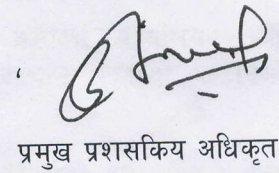 प्रमुख प्रशसकिय अधिकृत